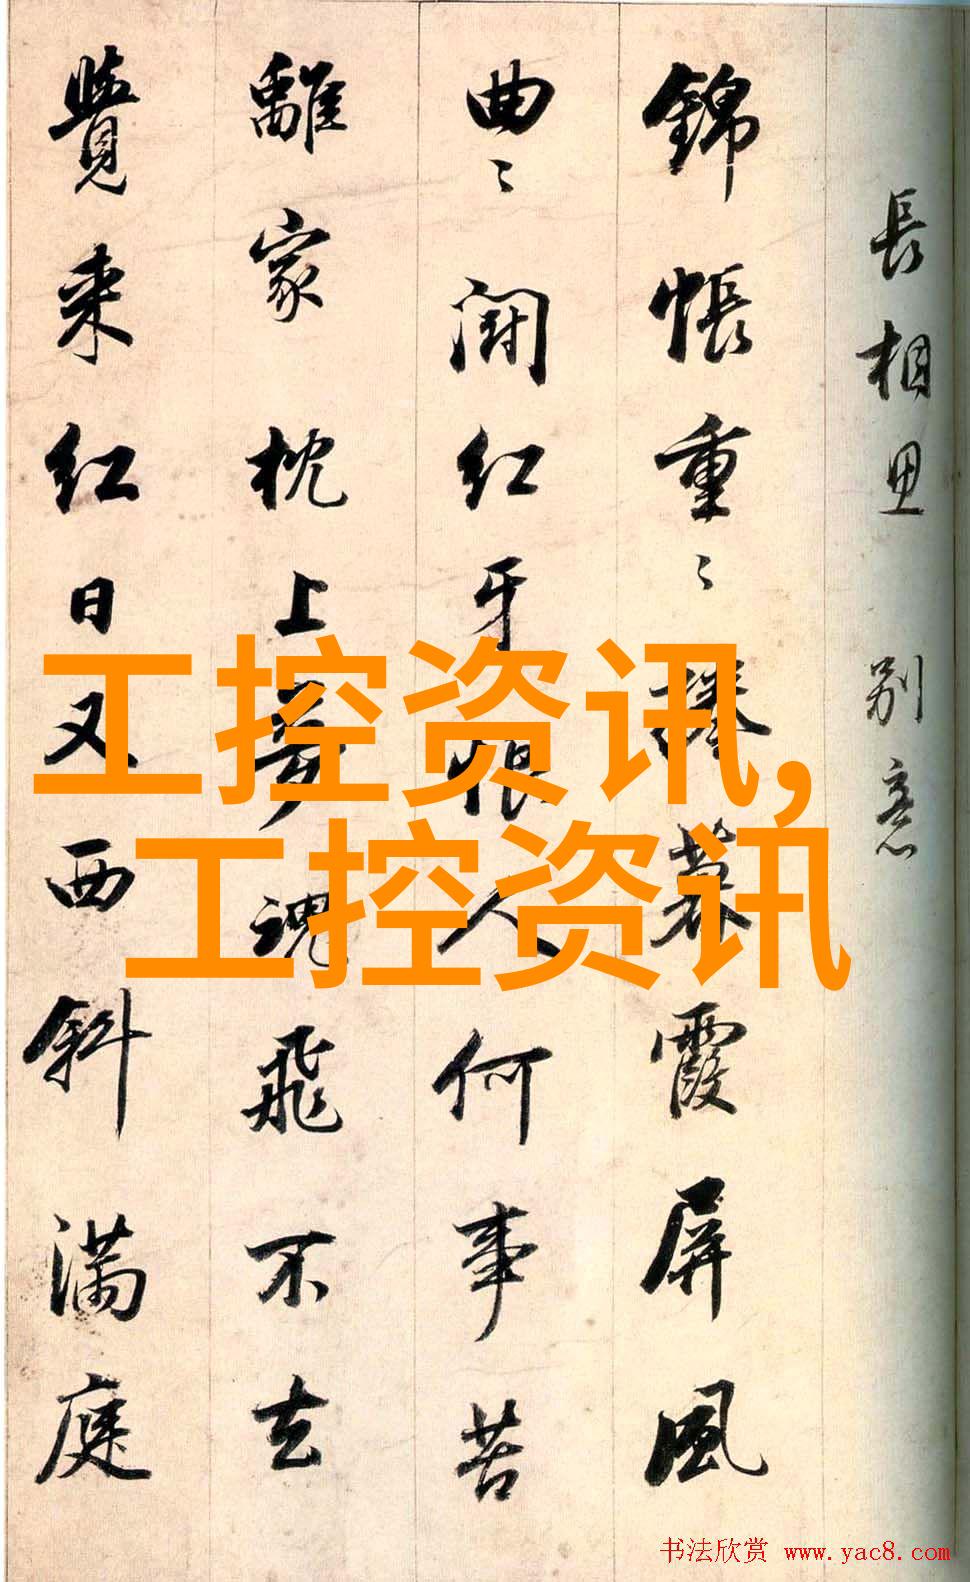 長相思 別意
錦帳重〻捲暮霞屏風
曲〻鬪紅牙恨人何事苦
離家枕上夢魂飛不去
覺来紅日又西斜滿庭
工控资讯,
工控资讯
书法欣赏 www.yac8.com